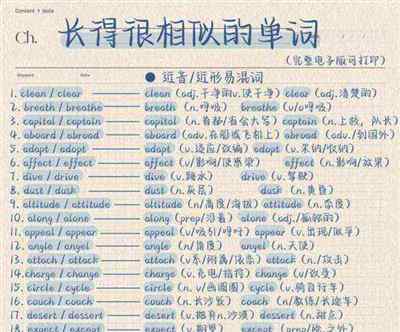 Content + Date
Ch. 长得很相似的单词
(完整电子版可打印)
Keyword Date
● 近音/近形易混词
1. clean / clear —— clean (adj.干净的v.使干净) clear (adj.清楚的)
2. breath / breathe —— breath (n.呼吸) breathe (v/o呼吸)
3. capital / captain —— capital (n.首都/省会大写) captain (n.上校,队长)
4. aboard / abroad —— aboard (adv.在船或飞机上) abroad (adv.到国外)
5. adapt / adopt —— adapt (v.适应/改编) adopt (v.采纳/收纳)
6. affect / effect —— affect (v/影响/使感染) effect (n.影响/效果)
7. dive / drive —— dive (v.跳水) drive (v.驾驶)
8. dust / dusk —— dust (n.灰尘) dusk (n.黄昏)
9. altitude / attitude —— altitude (n/高度/海拔) attitude (n.态度)
10. along / alone —— along (prep/沿着) alone (adj./孤独的)
11. appeal / appear —— appeal (v/吸引/呼吁) appear (v.出现/似乎)
12. angle / angel —— angle (n/角度) angel (n.天使)
13. attach / attack —— attach (v.系/附属/依恋) attack (n./攻击)
14. charge / change —— charge (v.充电/指控) change (v/改变)
15. circle / cycle —— circle (n. v/画圆圈) cycle (v.骑自行车)
16. couch / coach —— couch (n.长沙发) coach (n/教练/长途车)
17. desert / dessert —— desert (v.抛弃n.沙漠) dessert (n.甜点)
18. expect / except —— expect (v.期望) except (prep/除